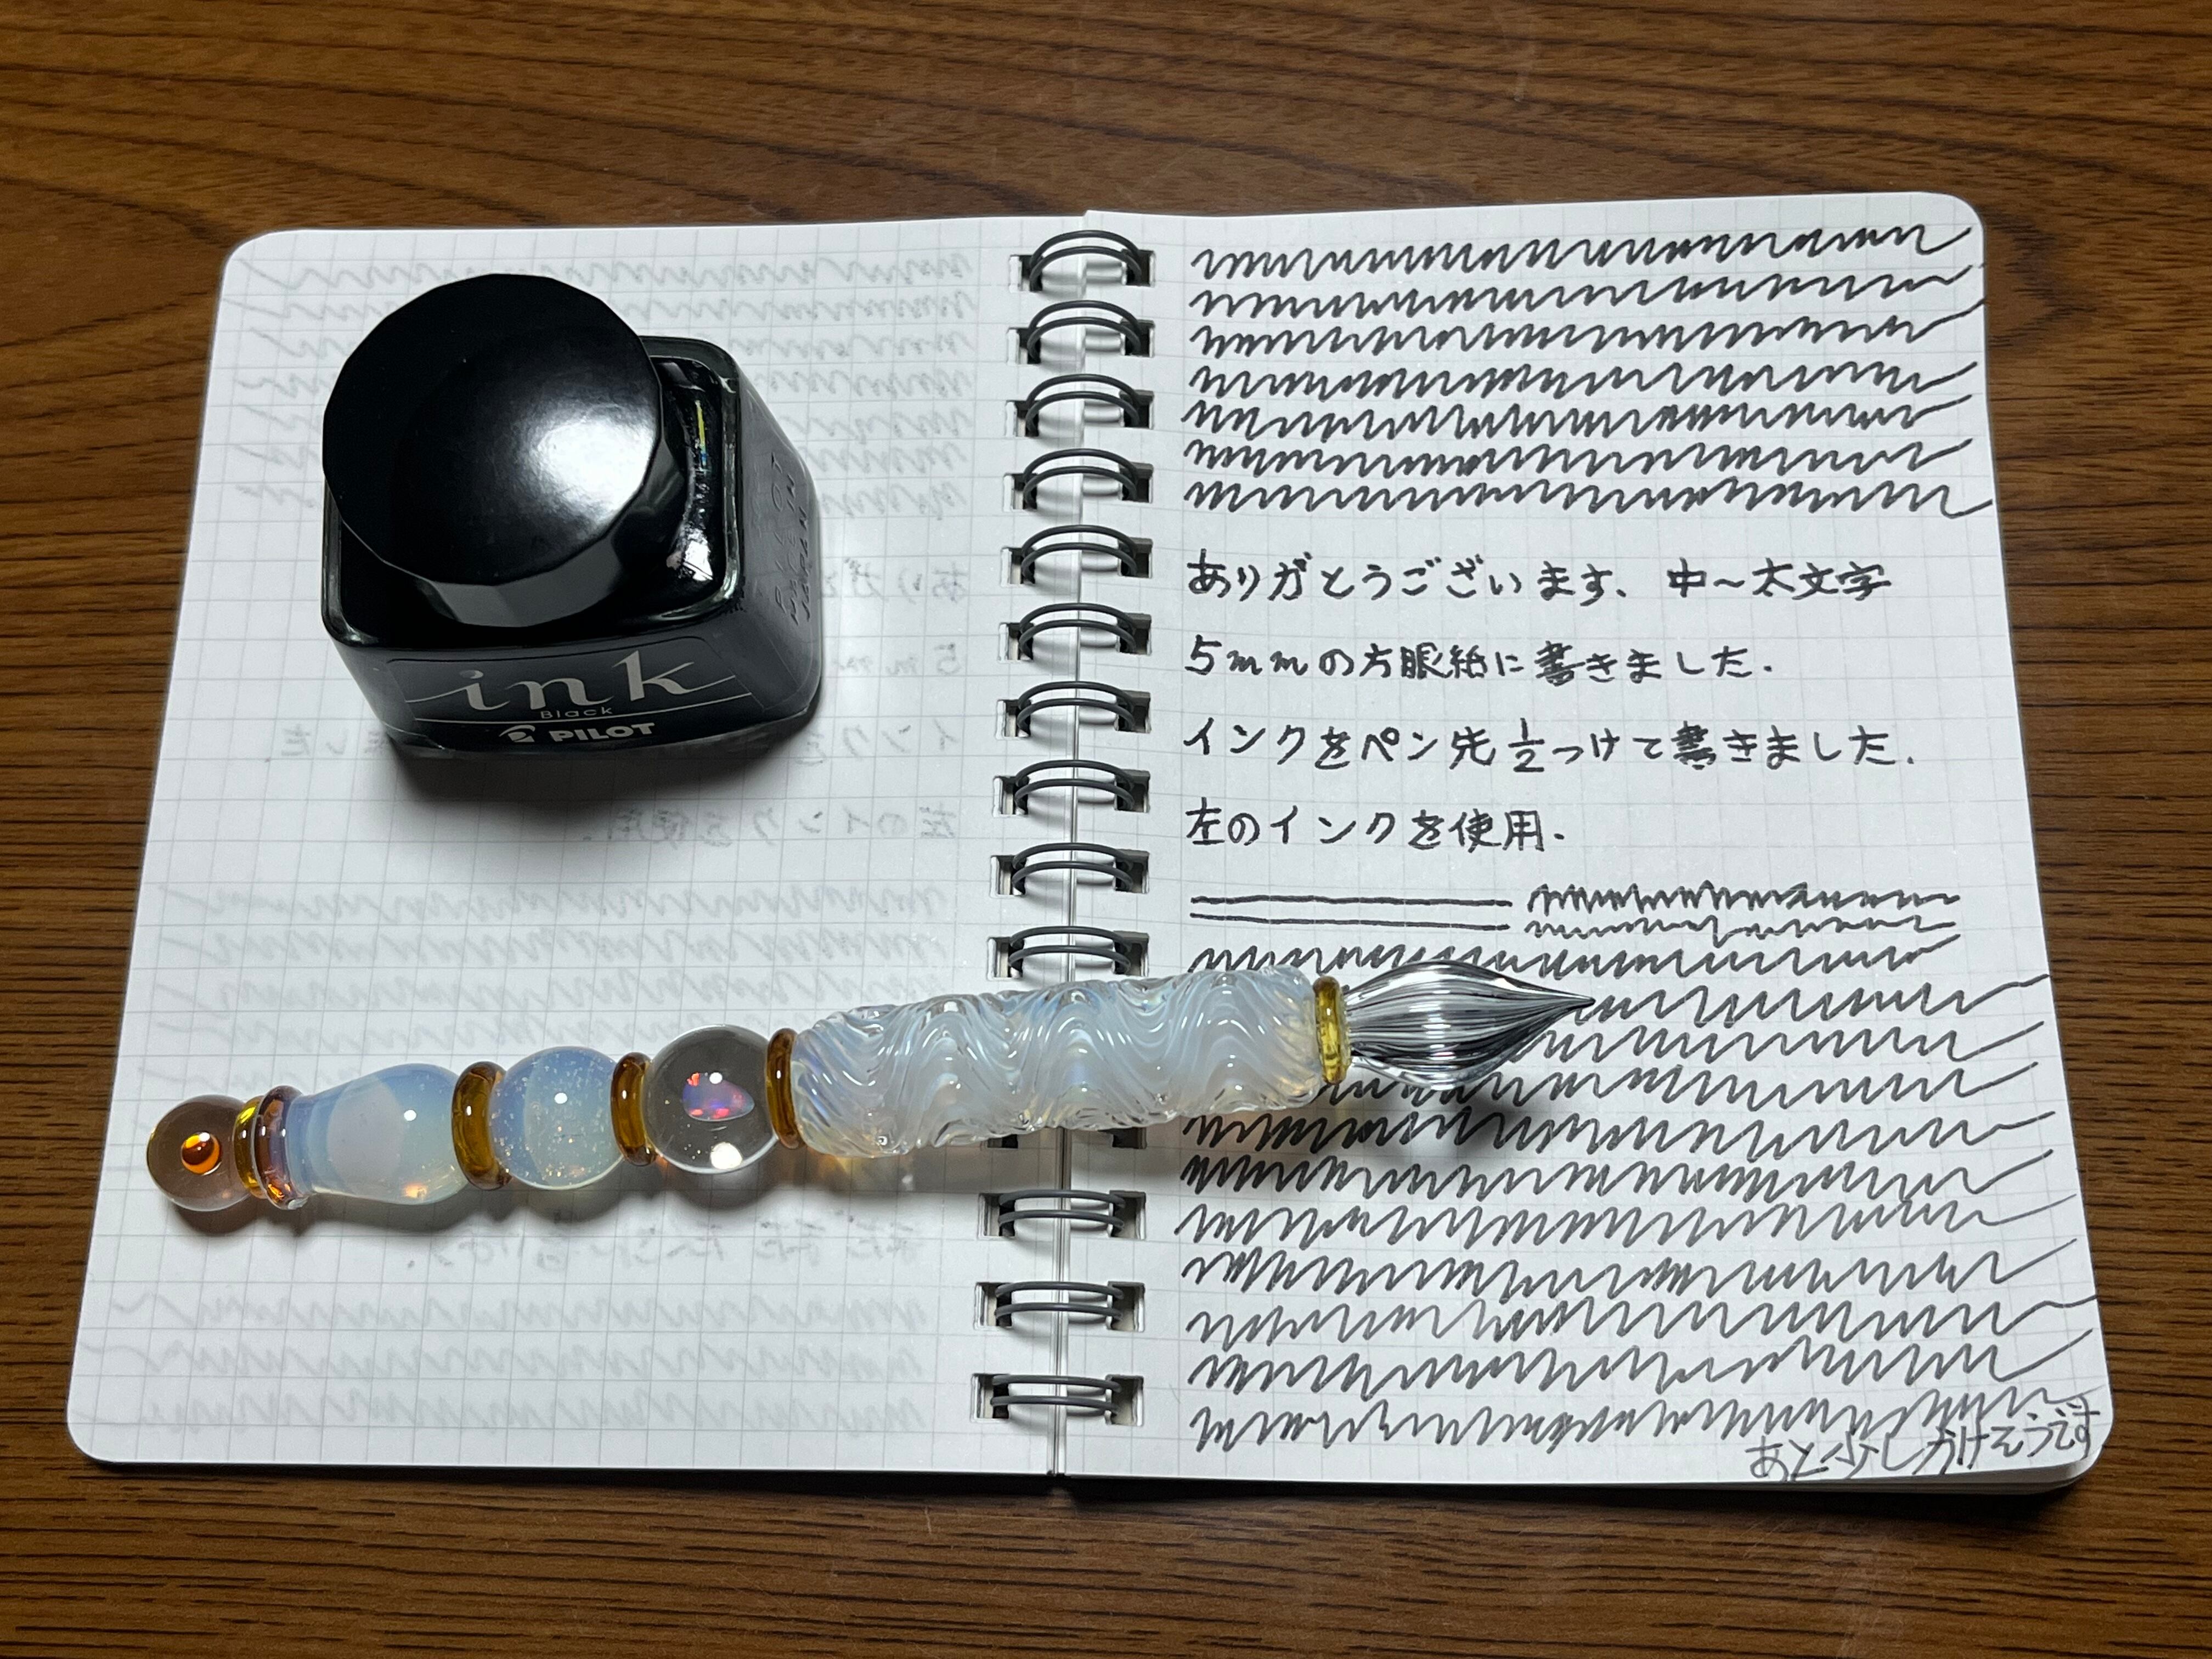 ink
Black
PILOT
ありがとうございます、中～太文字
5mmの方眼紙に書きました.
インクをペン先1/2つけて書きました.
左のインクを使用.
あと少しかけそうです